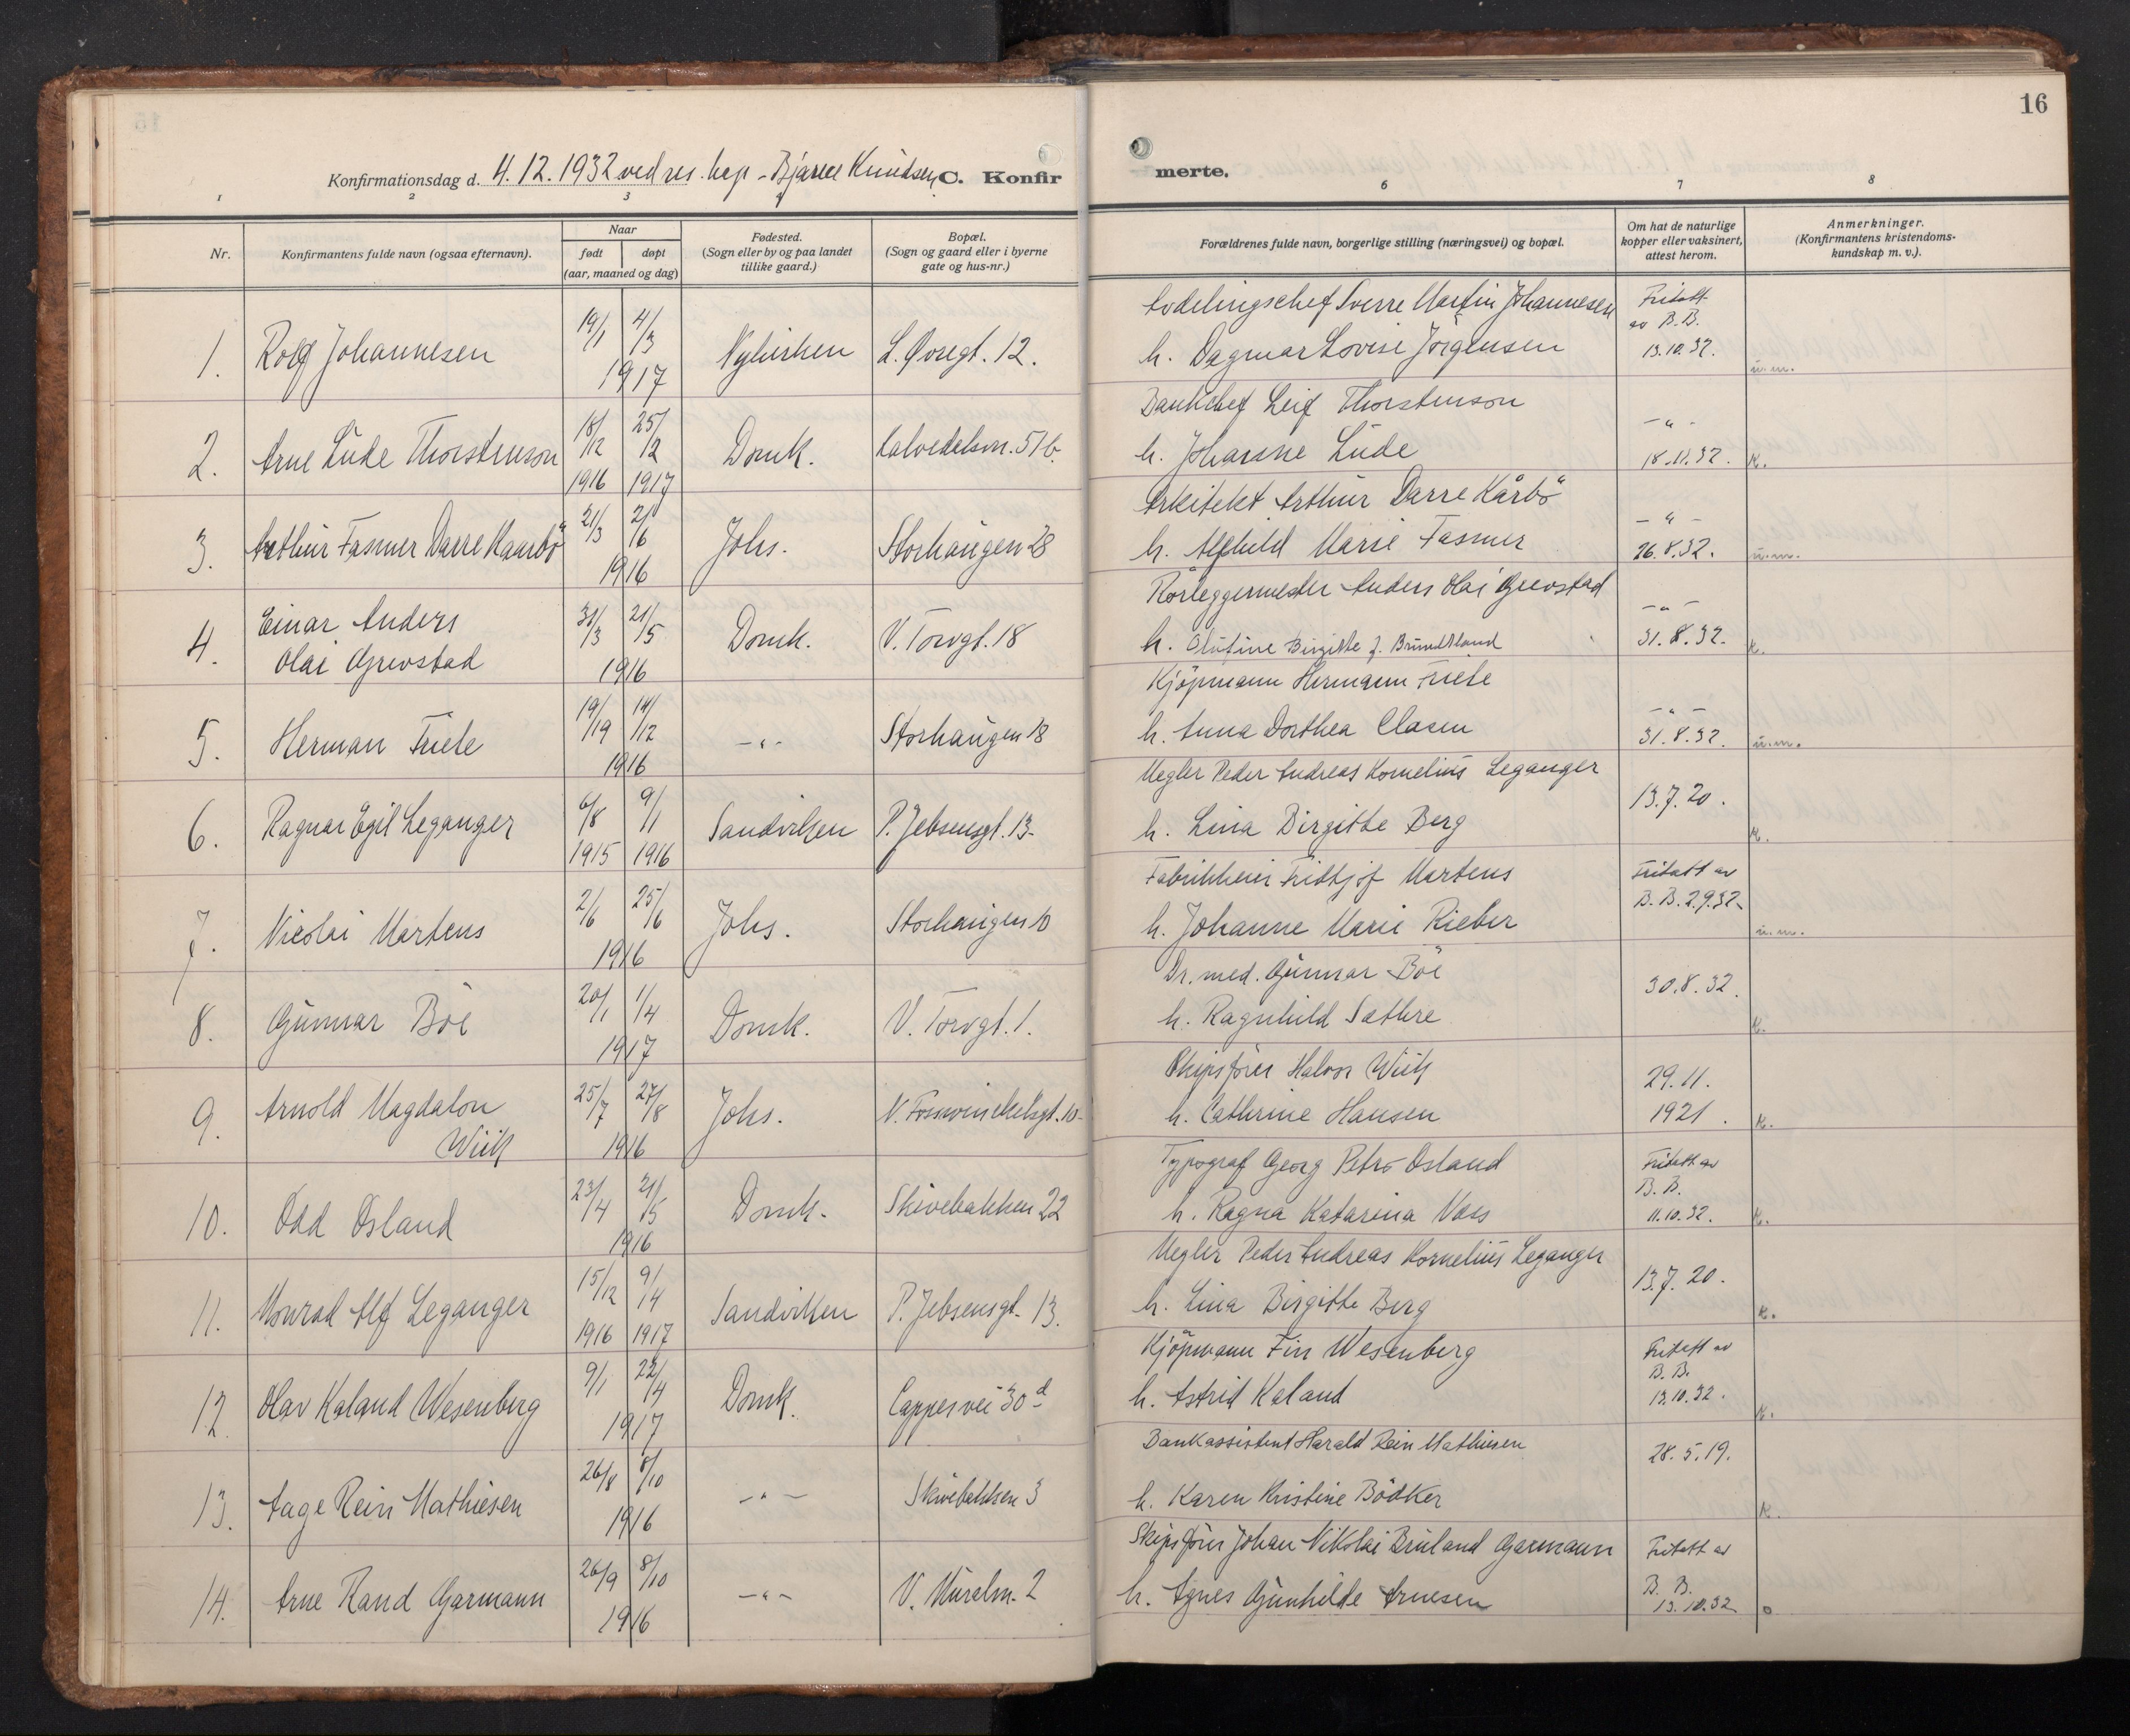 16
Konfirmationsdag d. 4. 12. 1932 ved res. kap. Bjarne Knudsen. C. Konfirmerte.
1 2 3 4 5 6 7 8
Nr. Konfirmantens fulde navn (ogsaa efternavn). Naar født døpt (aar, maaned og dag) Fødested. (Sogn eller by og paa landet tillike gaard.) Bopæl. (Sogn og gaard eller i byerne gate og hus-nr.) Forældrenes fulde navn, borgerlige stilling (næringsvei) og bopæl. Om hat de naturlige kopper eller vaksinert, attest herom. Anmerkninger. (Konfirmantens kristendomskundskap m. v.).
1. Rolf Johannesen 19/1 4/3 1917 Nykirken L. Øvregt. 12. Avdelingschef Sverre Martin Johannesen h. Dagmar Lovise Jörgensen Fritatt av B.B. 13.10.32. u.m.
2. Arne Lude Thorstenson 18/12 1916 25/2 1917 Domk. Kalvedalsvn. 51b. Bankchef Leif Thorstenson h. Johanne Lude -"- 18.11.32. K.
3. Arthur Fasmer Darre Kaarbö 21/3 2/6 1916 Johs. Storhaugen 28 Arkitekt Arthur Darre Kårbö h. Alfhild Marie Fasmer -"- 26.8.32. u.m.
4. Einar Anders Olai Grevstad 31/3 21/5 1916 Domk. V. Torvgt. 18 Rörleggermester Anders Olai Grevstad h. Olufine Birgitte f. Brundtland -"- 31.8.32. K.
5. Herman Friele 19/19 14/12 1916 -"- Storhaugen 18 Kjöpmann Hermann Friele h. Anna Dorthea Clasen -"- 31.8.32. u.m.
6. Ragnar Egil Leganger 6/8 1915 9/1 1916 Sandviken P. Jebsensgt. 13. Megler Peder Andreas Kornelius Leganger h. Lina Birgitte Berg 13.7.20. K.
7. Nicolai Martens 2/6 25/6 1916 Johs. Storhaugen 10 Fabrikkeier Fridtjof Martens h. Johanne Marie Rieber Fritatt av B.B. 2.9.32. u.m.
8. Gunnar Böe 20/1 1/4 1917 Domk. V. Torvgt. 1. Dr. med. Gunnar Böe h. Ragnhild Sæthre 30.8.32. K.
9. Arnold Magdalon Wiik 25/7 27/8 1916 Johs. V. Fosswinckelsgt. 10. Skipsförer Halvor Wiik h. Cathrine Hansen 29.11. 1921. K.
10. Odd Osland 23/4 21/5 1916 Domk. Skivebakken 22 Typograf Georg Petro Osland h. Ragna Katarina Voss Fritatt av B.B. 11.10.32. K.
11. Monrad Alf Leganger 15/12 1916 9/14 1917 Sandviken P. Jebsensgt. 13. Megler Peder Andreas Kornelius Leganger h. Lina Birgitte Berg 13.7.20. K.
12. Olav Kaland Wesenberg 9/1 22/4 1917 Domk. Cappes vei 30 d Kjöpmann Fin Wesenberg h. Astrid Kaland Fritatt av B.B. 13.10.32. K.
13. Aage Rein Mathiesen 26/8 8/10 1916 -"- Skivebakken 3 Bankassistent Harald Rein Mathiesen h. Karen Kristine Bödker 28.5.19. K.
14. Arne Rand Garmann 26/9 8/10 1916 -"- V. Muralm. 2 Skipsförer Johan Nikolai Bruland Garmann h. Agnes Gunhilde Arnesen Fritatt av B.B. 13.10.32. o